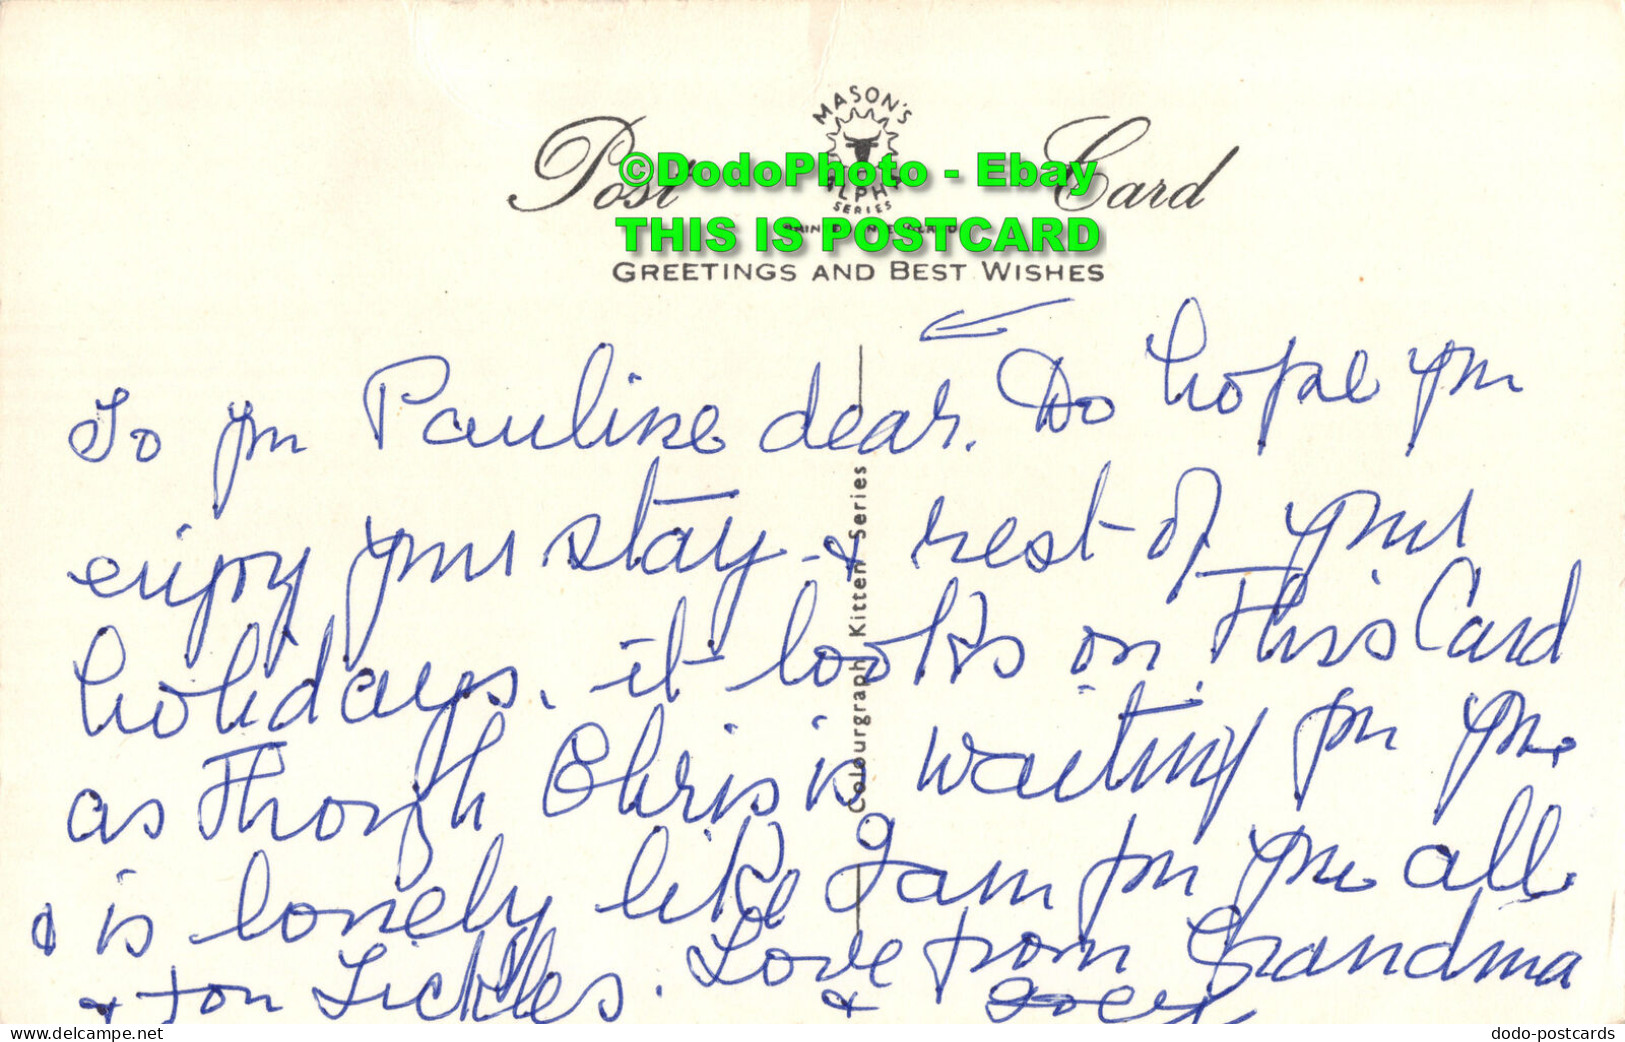 MASON'S
Post Card
ALPHA
SERIES
©DodoPhoto - Ebay
THIS IS POSTCARD
GREETINGS AND BEST WISHES
To you Pauline dear. Do hope you
enjoy your stay & rest of your
holidays. it looks on This Card
as Though Chris is waiting for you
& is lonely like I am for you all
& for Tickles. Love from Grandma
&
Colourgraph Kitten Series
www.delcampe.net
dodo-postcards